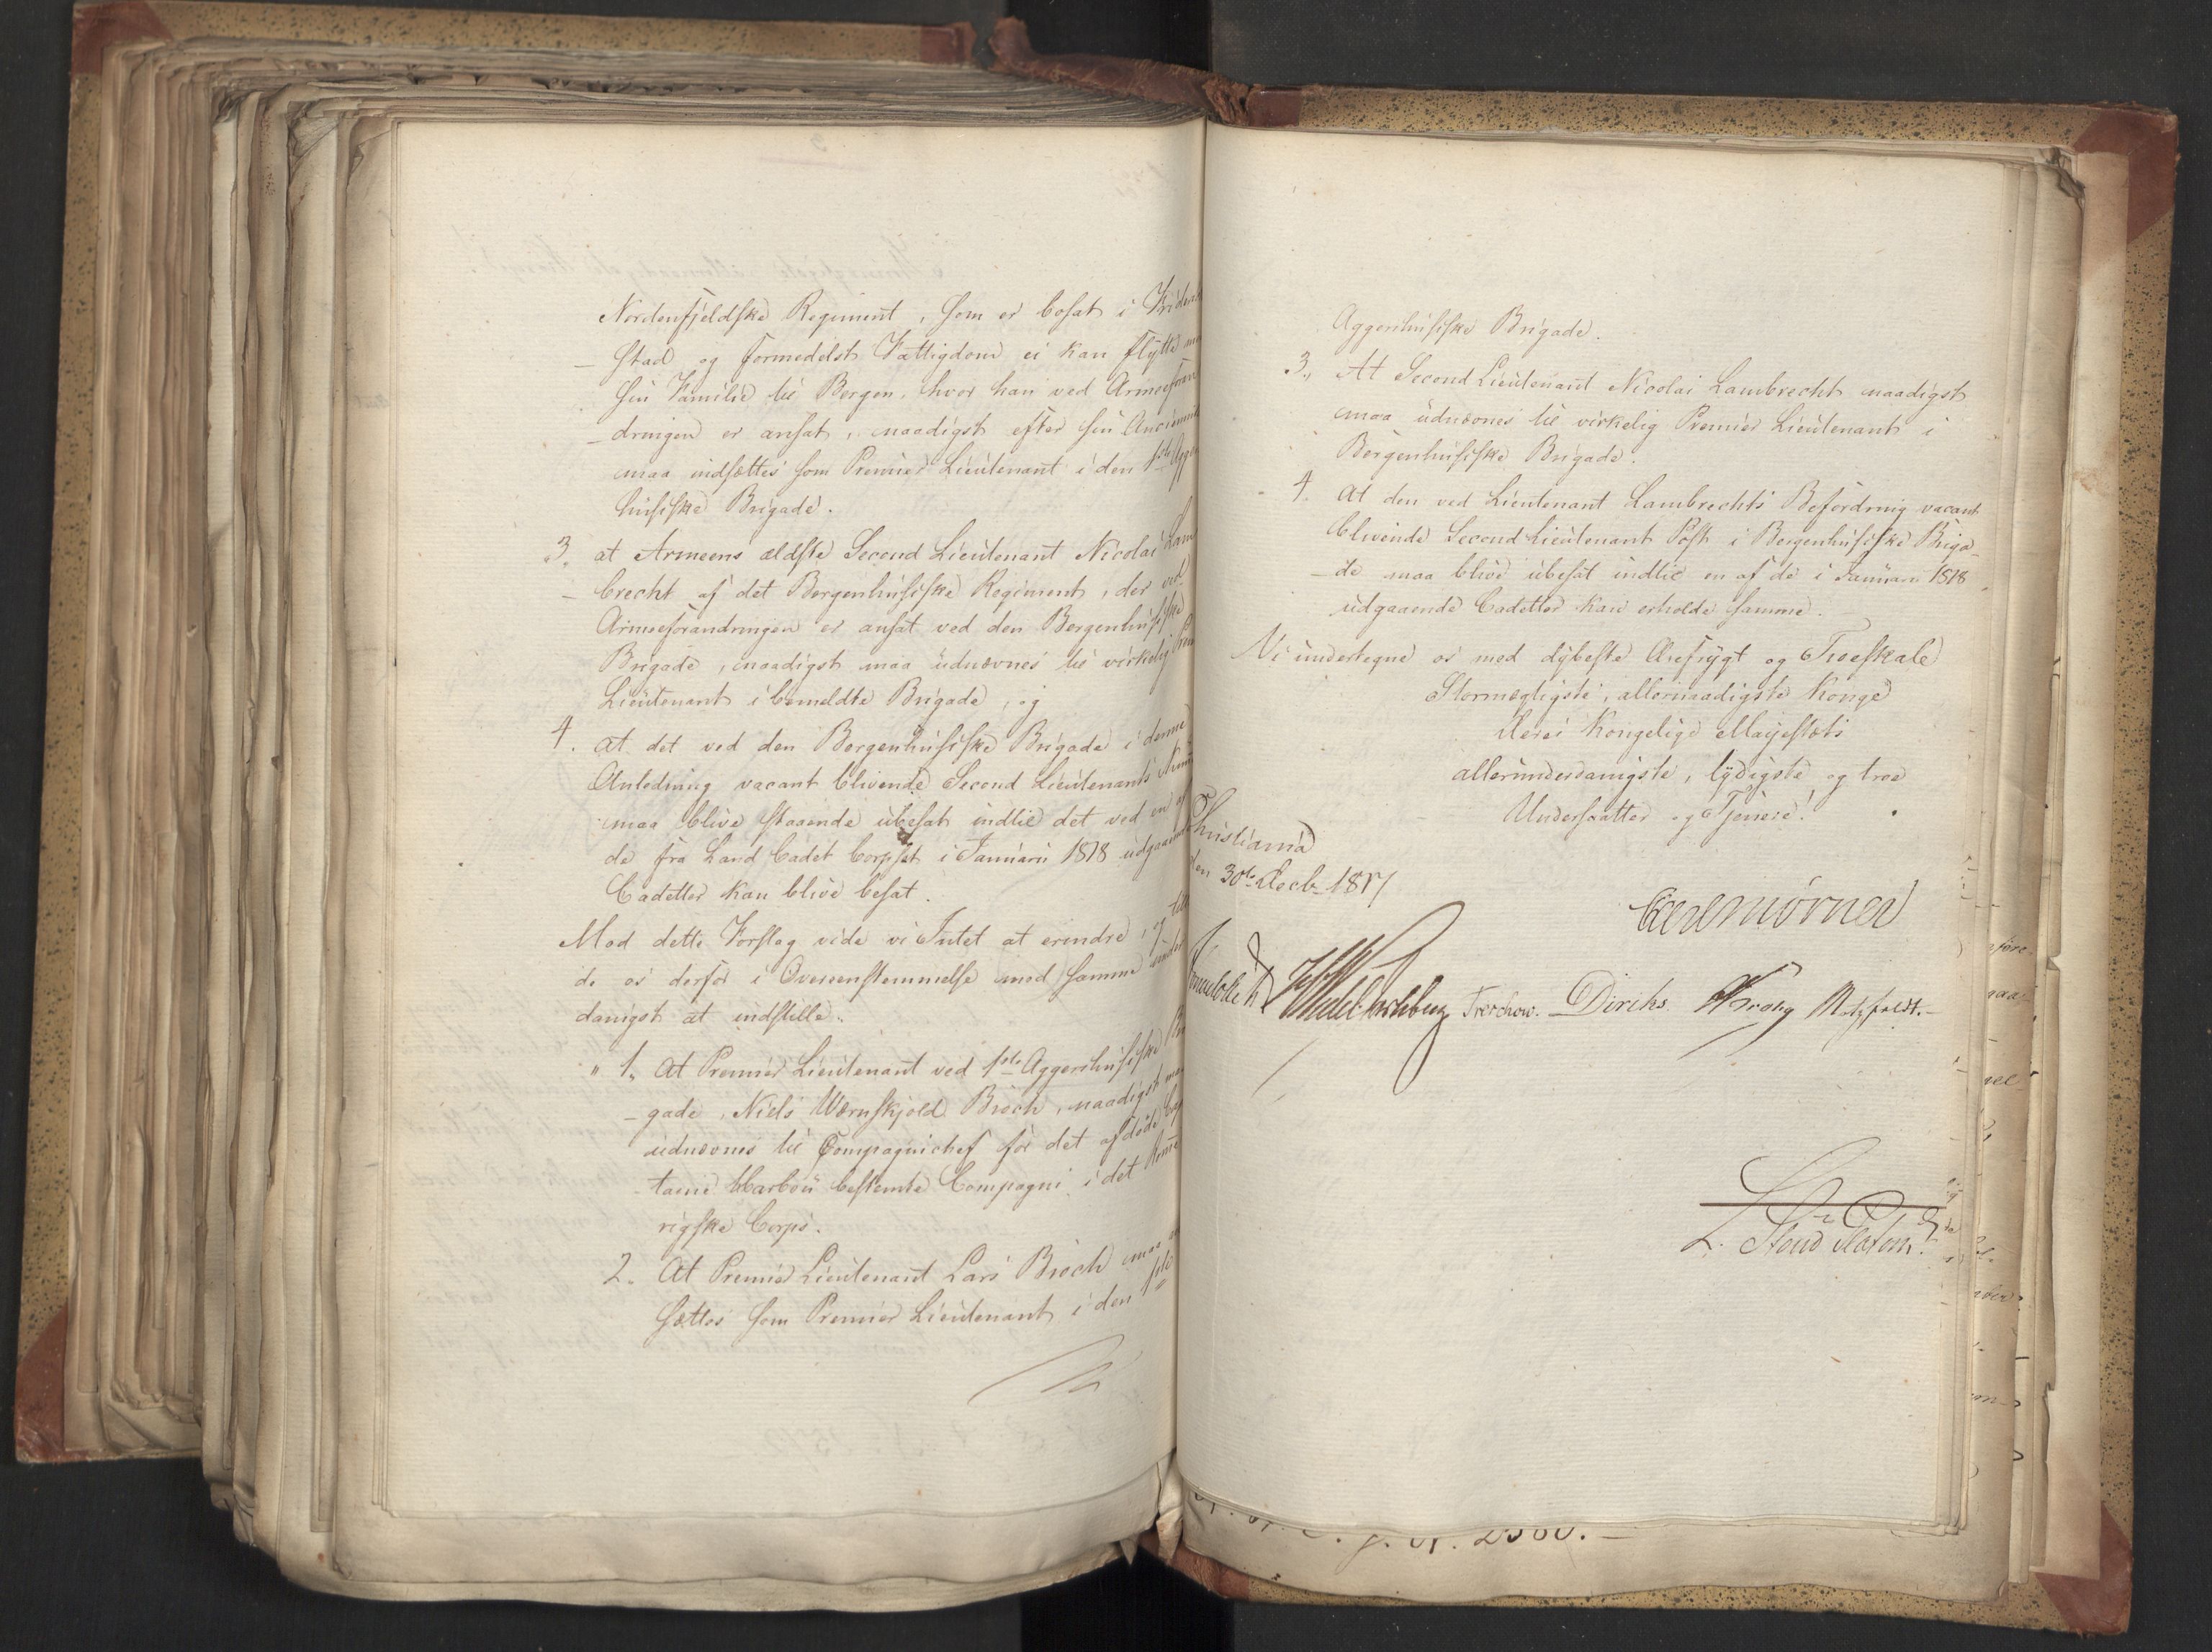 Nordenfjeldske Regiment, som er bosat i Fride
stad og formedelst Fattigdom ei kan flytte
sin Familie til Bergen, hvor han ved Armeefran
dringen er ansat, naadigst efter sin Ancienni
maa indsættes som Premier Lieutenant i den 1ste Agge
huusiske Brigade.
3. at Armeens ældste Second Lieutenant Nicolai Lam
brecht af det Bergenhusiske Regiment, der ved
Armeeforandringen er ansat ved den Bergenhusiske
Brigade, naadigst maa udnævnes til virkelig
Lieutenant i bemeldte Brigade, og
4. at det ved den Bergenhusiske Brigade i denne
Anledning vacant blivende Second Lieutenants
maa blive staaende ubesat indtil det ved en af
de fra Land Cadet Corpset i Januarii 1818 udgaaende
Cadetter kan blive besat.
Mod dette Forslag vide vi Intet at erindre, og
de os derfor i Overeensstemmelse med samme
danigst at indstille.
" 1. At Premier Lieutenant ved 1ste Aggershusiske
gade, Niels Wærnskjold Broch, naadigst maa
udnævnes til Compagnichef for det afdøde
taine Harbou bestemte Compagni i det
rigske Corps.
2. At Premier Lieutenant Lars Broch maa
sættes som Premier Lieutenant i den 1ste
Aggershusiske Brigade.
3. At Second Lieutenant Nicolai Lambrecht naadigst
maa udnævnes til virkelig Premier Lieutenant i
Bergenhusiske Brigade.
4. At den ved Lieutenant Lambrechts Befordring vacant
blivende Second Lieutenant Post i Bergenhusiske Briga-
de maa blive ubesat indtil en af de i Januari 1818
udgaaende Cadetter kan erholde samme.
Vi undertegne os med dybeste Ærefrygt og Troeskab
Stormægtigste, allernaadigste Konge
Deres Kongelige Majestæts
allerunderdanigste, lydigste og troe
Undersaatter og Tjenere!
Christiania
den 30te Decbr 1817
Carl Mörner
Sommerhielm Wedel Jarlsberg Treschow. Diriks Krog Motzfeldt.
L. Stoud Platou